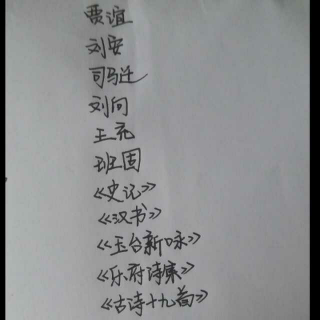 贾谊
刘安
司马迁
刘向
王充
班固
《史记》
《汉书》
《玉台新咏》
《乐府诗集》
《古诗十九首》